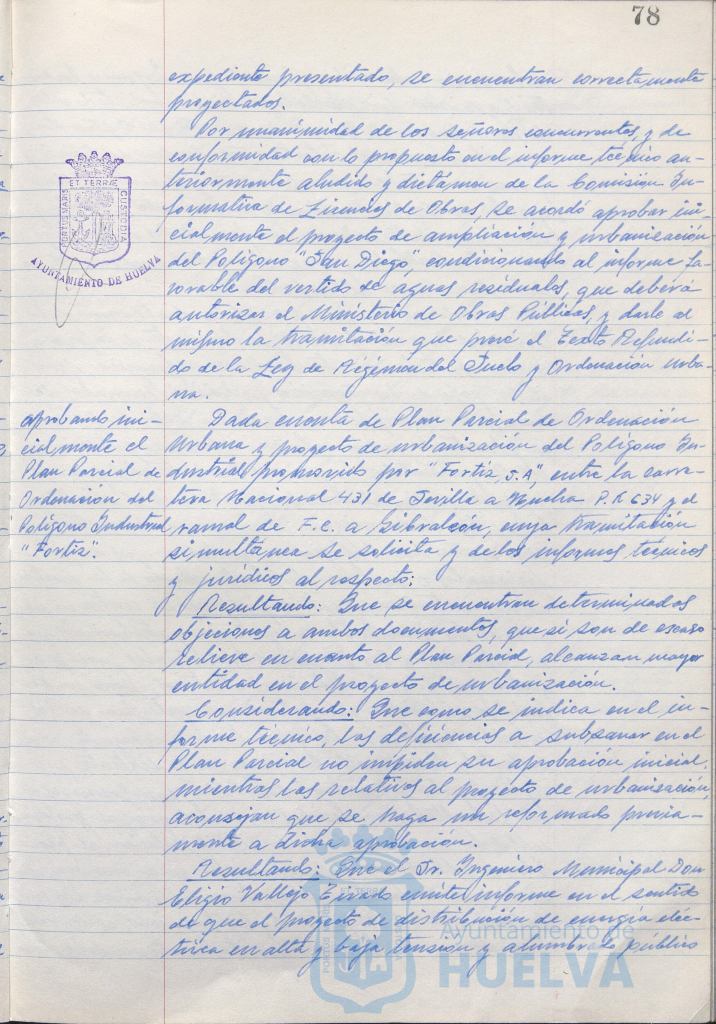 78
expediente presentado, se encuentran correctamente
proyectados.
Por unanimidad de los señores concurrentes, y de
conformidad con lo propuesto en el informe técnico an-
teriormente aludido y dictámen de la Comisión In-
formativa de Licencias de Obras, se acordó aprobar ini-
cialmente el proyecto de ampliación y urbanización
del Polígono "San Diego", condicionando al informe fa-
vorable del vertido de aguas residuales, que deberá
autorizar el Ministerio de Obras Públicas, y darle al
mismo la tramitación que prevé el Texto Refundi-
do de la Ley de Régimen del Suelo y Ordenación Urba-
na.
PORTUS MARIS ET TERRÆ CUSTODIA
AYUNTAMIENTO DE HUELVA
aprobando ini-
cialmente el
Plan Parcial de
Ordenación del
Polígono Industrial
"Fortiz".
Dada cuenta de Plan Parcial de Ordenación
Urbana y proyecto de urbanización del Polígono In-
dustrial promovido por "Fortiz, S.A", entre la carre-
tera Nacional 431 de Sevilla a Huelva P.K 634 y el
ramal de F.C. a Gibraleón, cuya tramitación
simultanea se solicita y de los informes técnicos
y jurídicos al respecto:
Resultando: Que se encuentran determinados
objeciones a ambos documentos, que si son de escaso
relieve en cuanto al Plan Parcial, alcanzan mayor
entidad en el proyecto de urbanización.
Considerando: Que como se indica en el in-
forme técnico, las deficiencias a subsanar en el
Plan Parcial no impiden su aprobación inicial,
mientras las relativas al proyecto de urbanización,
aconsejan que se haga un reformado previa-
mente a dicha aprobación.
Resultando: Que el Sr. Ingeniero Municipal Don
Eligio Vallejo Tirado emite informe en el sentido
de que el proyecto de distribución de energía eléc-
trica en alta y baja tensión y alumbrado público
Ayuntamiento de
HUELVA